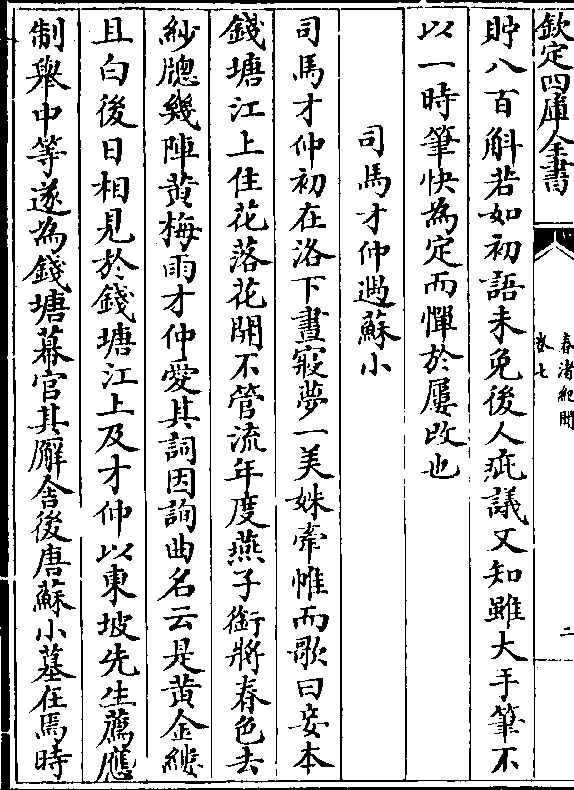 欽定四庫全書
春渚紀聞
卷七
二
貯八百斛若如初語未免後人疵議又知雖大手筆不
以一時筆快為定而憚於屢改也
司馬才仲遇蘇小
司馬才仲初在洛下晝寢夢一美姝牽帷而歌曰妾本
錢塘江上住花落花開不管流年度燕子銜將春色去
紗牕幾陣黄梅雨才仲愛其詞因詢曲名云是黄金縷
且白後日相見於錢塘江上及才仲以東坡先生薦應
制舉中等遂為錢塘幕官其廨舍後唐蘇小墓在焉時